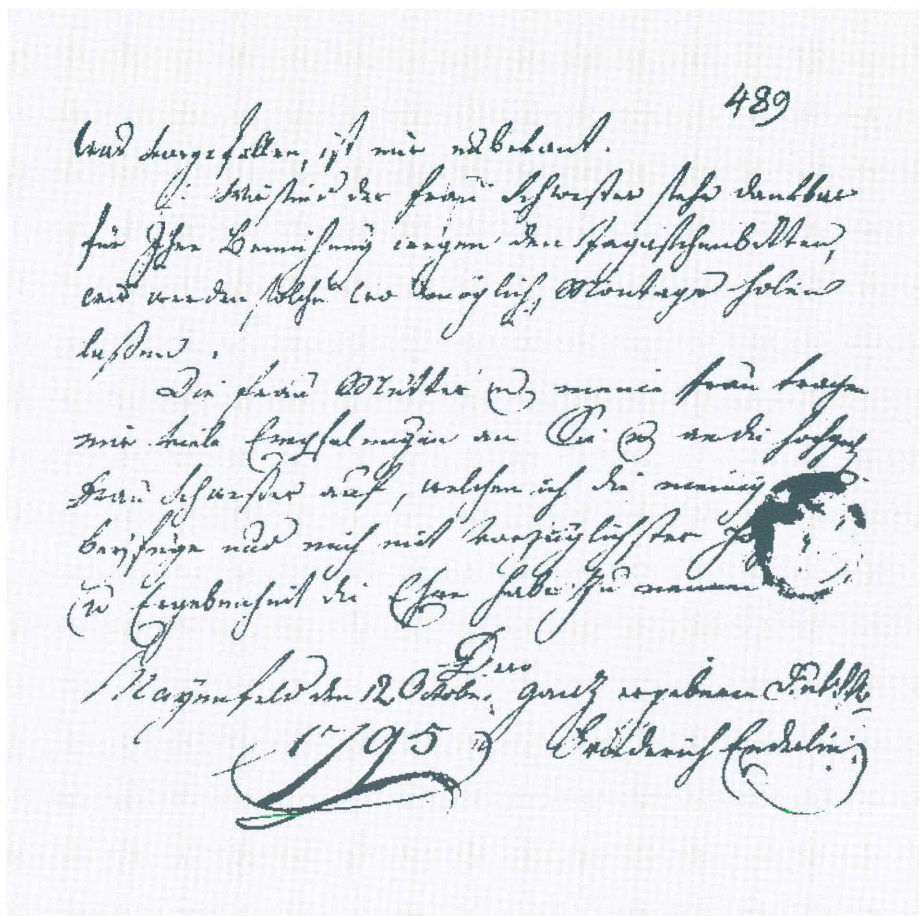 489
was vorgefallen, ist mir unbekant.
Wir sind der Frau Schwester sehr dankbar
für Ihre Bemühung wegen den
und werden solche wo möglich, Montags holen
laßen.
Die Frau Mutter u meine Frau tragen
mir viele Empfelungen an Sie u an die hochgeh
Frau Schwester auf, welchen ich die meinig
beyfüge und mich mit vorzüglichster
u Ergebenheit die Ehre habe zu nennen
Dero
Mayenfeld den 12 Octobr. ganz ergebenen
1795 Friederich Enderlin